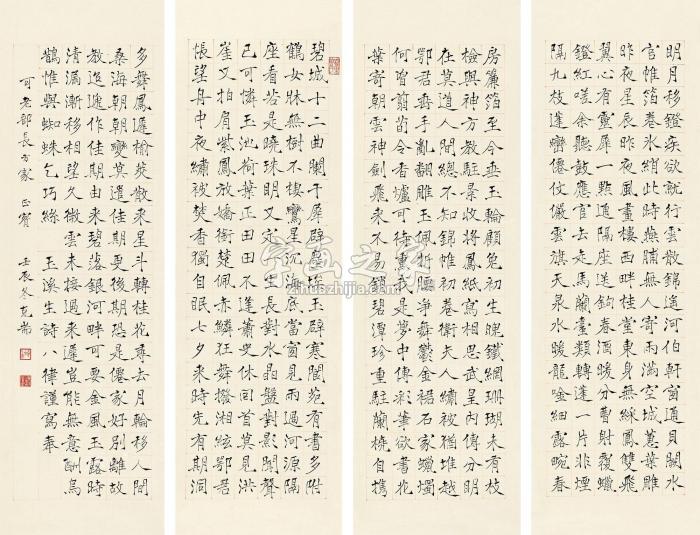 明月移鐙疾欲就行雲散錦遙河伯軒窗通貝闕水
宮帷箔卷冰綃此時燕脯無人寄雨滿空城蕙葉雕
昨夜星辰昨夜風畫樓西畔桂堂東身無綵鳳雙飛
翼心有靈犀一點通隔座送鉤春酒暖分曹射覆蠟
鐙紅嗟余聽鼓應官去走馬蘭臺類轉蓬一片非煙
隔九枝蓬巒僊仗儼雲旗天泉水暖龍吟細露畹春
房簾箔至今垂玉輪顧兔初生魄鐵網珊瑚未有枝
檢與神方教駐景收將鳳紙寫相思武皇內傳分明
在莫道人間總不知錦帷初卷衛夫人繡被猶堆越
鄂君垂手亂翻雕玉佩折腰爭舞鬱金裙石家蠟燭
何曾剪荀令香爐可待熏我是夢中傳彩筆欲書花
葉寄朝雲神劍飛來不易銷碧潭珍重駐蘭橈自攜
碧城十二曲闌干犀辟塵埃玉辟寒閬苑有書多附
鶴女牀無樹不棲鸞星沉海底當窗見雨過河源隔
座看若是曉珠明又定一生長對水晶盤對影聞聲
已可憐玉池荷葉正田田不逢蕭史休回首莫見洪
崖又拍肩紫鳳放嬌銜楚佩赤鱗狂舞撥湘絃鄂君
悵望舟中夜繡被焚香獨自眠七夕來時先有期洞
多舞鳳遲榆莢散來星斗轉桂花尋去月輪移人間
桑海朝朝變莫遣佳期更後期恐是僊家好別離故
教迢遞作佳期由來碧落銀河畔可要金風玉露時
清漏漸移相望久微雲未接過來遲豈能無意酬烏
鵲惟與蜘蛛乞巧絲 玉溪生詩八律謹寫奉
可老部長方家 正 壬辰冬克
字画之家